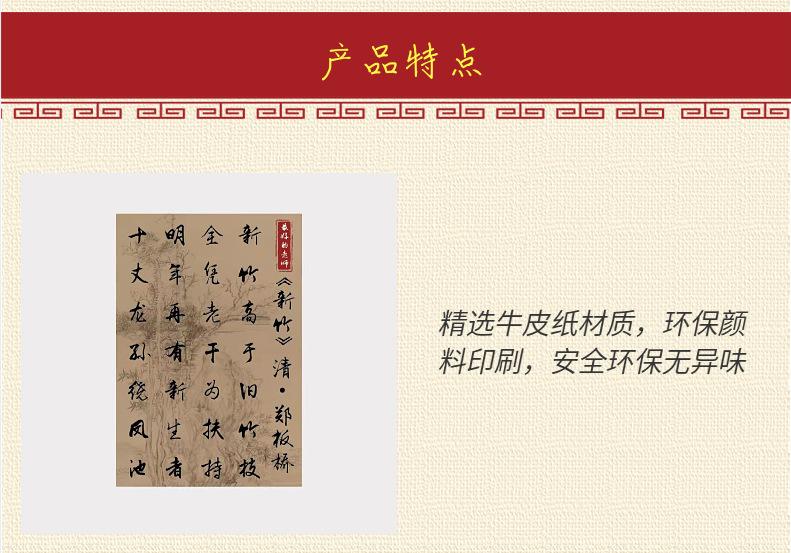 产品特点
最好的老师
《新竹》清·郑板桥
新竹高于旧竹枝
全凭老干为扶持
明年再有新生者
十丈龙孙绕凤池
精选牛皮纸材质，环保颜
料印刷，安全环保无异味